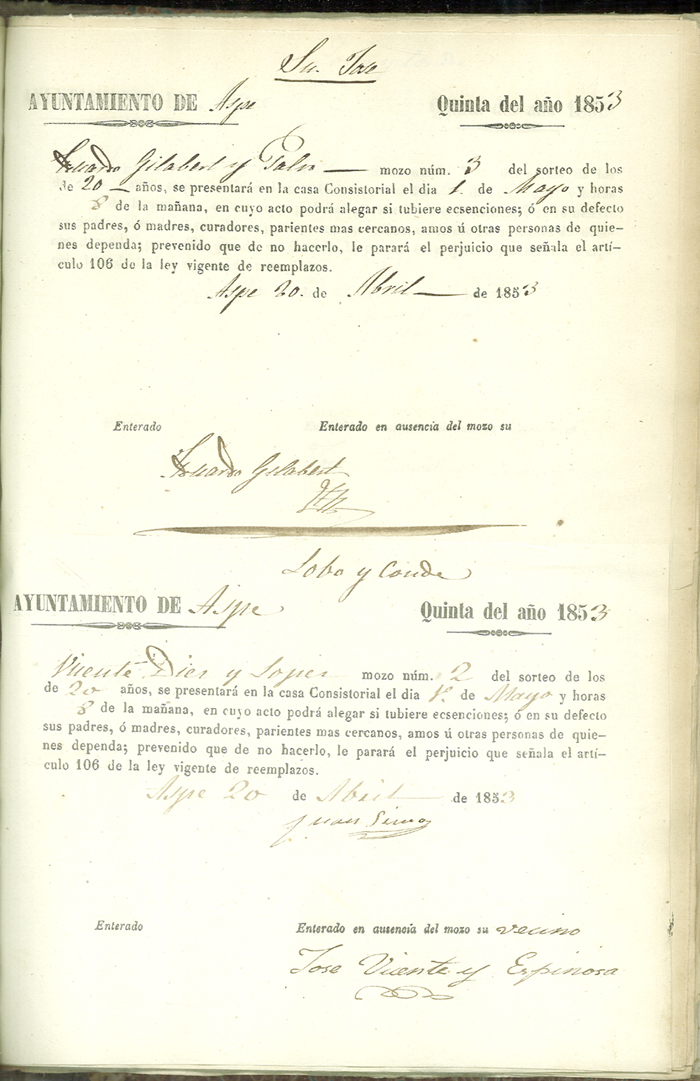 Sn. José
AYUNTAMIENTO DE Aspe Quinta del año 1853
Gilabert y mozo núm. 3 del sorteo de los
de 20 años, se presentará en la casa Consistorial el dia 1. de Mayo y horas
8 de la mañana, en cuyo acto podrá alegar si tubiere ecsenciones; ó en su defecto
sus padres, ó madres, curadores, parientes mas cercanos, amos ú otras personas de quie-
nes dependa; prevenido que de no hacerlo, le parará el perjuicio que señala el artí-
culo 106 de la ley vigente de reemplazos.
Aspe 20. de Abril de 1853
Enterado Enterado en ausencia del mozo su
Gilabert
Lobo y Conde
AYUNTAMIENTO DE Aspe Quinta del año 1853
Vicente Dies y Lopez mozo núm. 2 del sorteo de los
de 20 años, se presentará en la casa Consistorial el dia 1º. de Mayo y horas
8 de la mañana, en cuyo acto podrá alegar si tubiere ecsenciones; ó en su defecto
sus padres, ó madres, curadores, parientes mas cercanos, amos ú otras personas de quie-
nes dependa; prevenido que de no hacerlo, le parará el perjuicio que señala el artí-
culo 106 de la ley vigente de reemplazos.
Aspe 20 de Abril de 1853
Juan
Enterado Enterado en ausencia del mozo su vecino
Jose Vicente y Espinosa